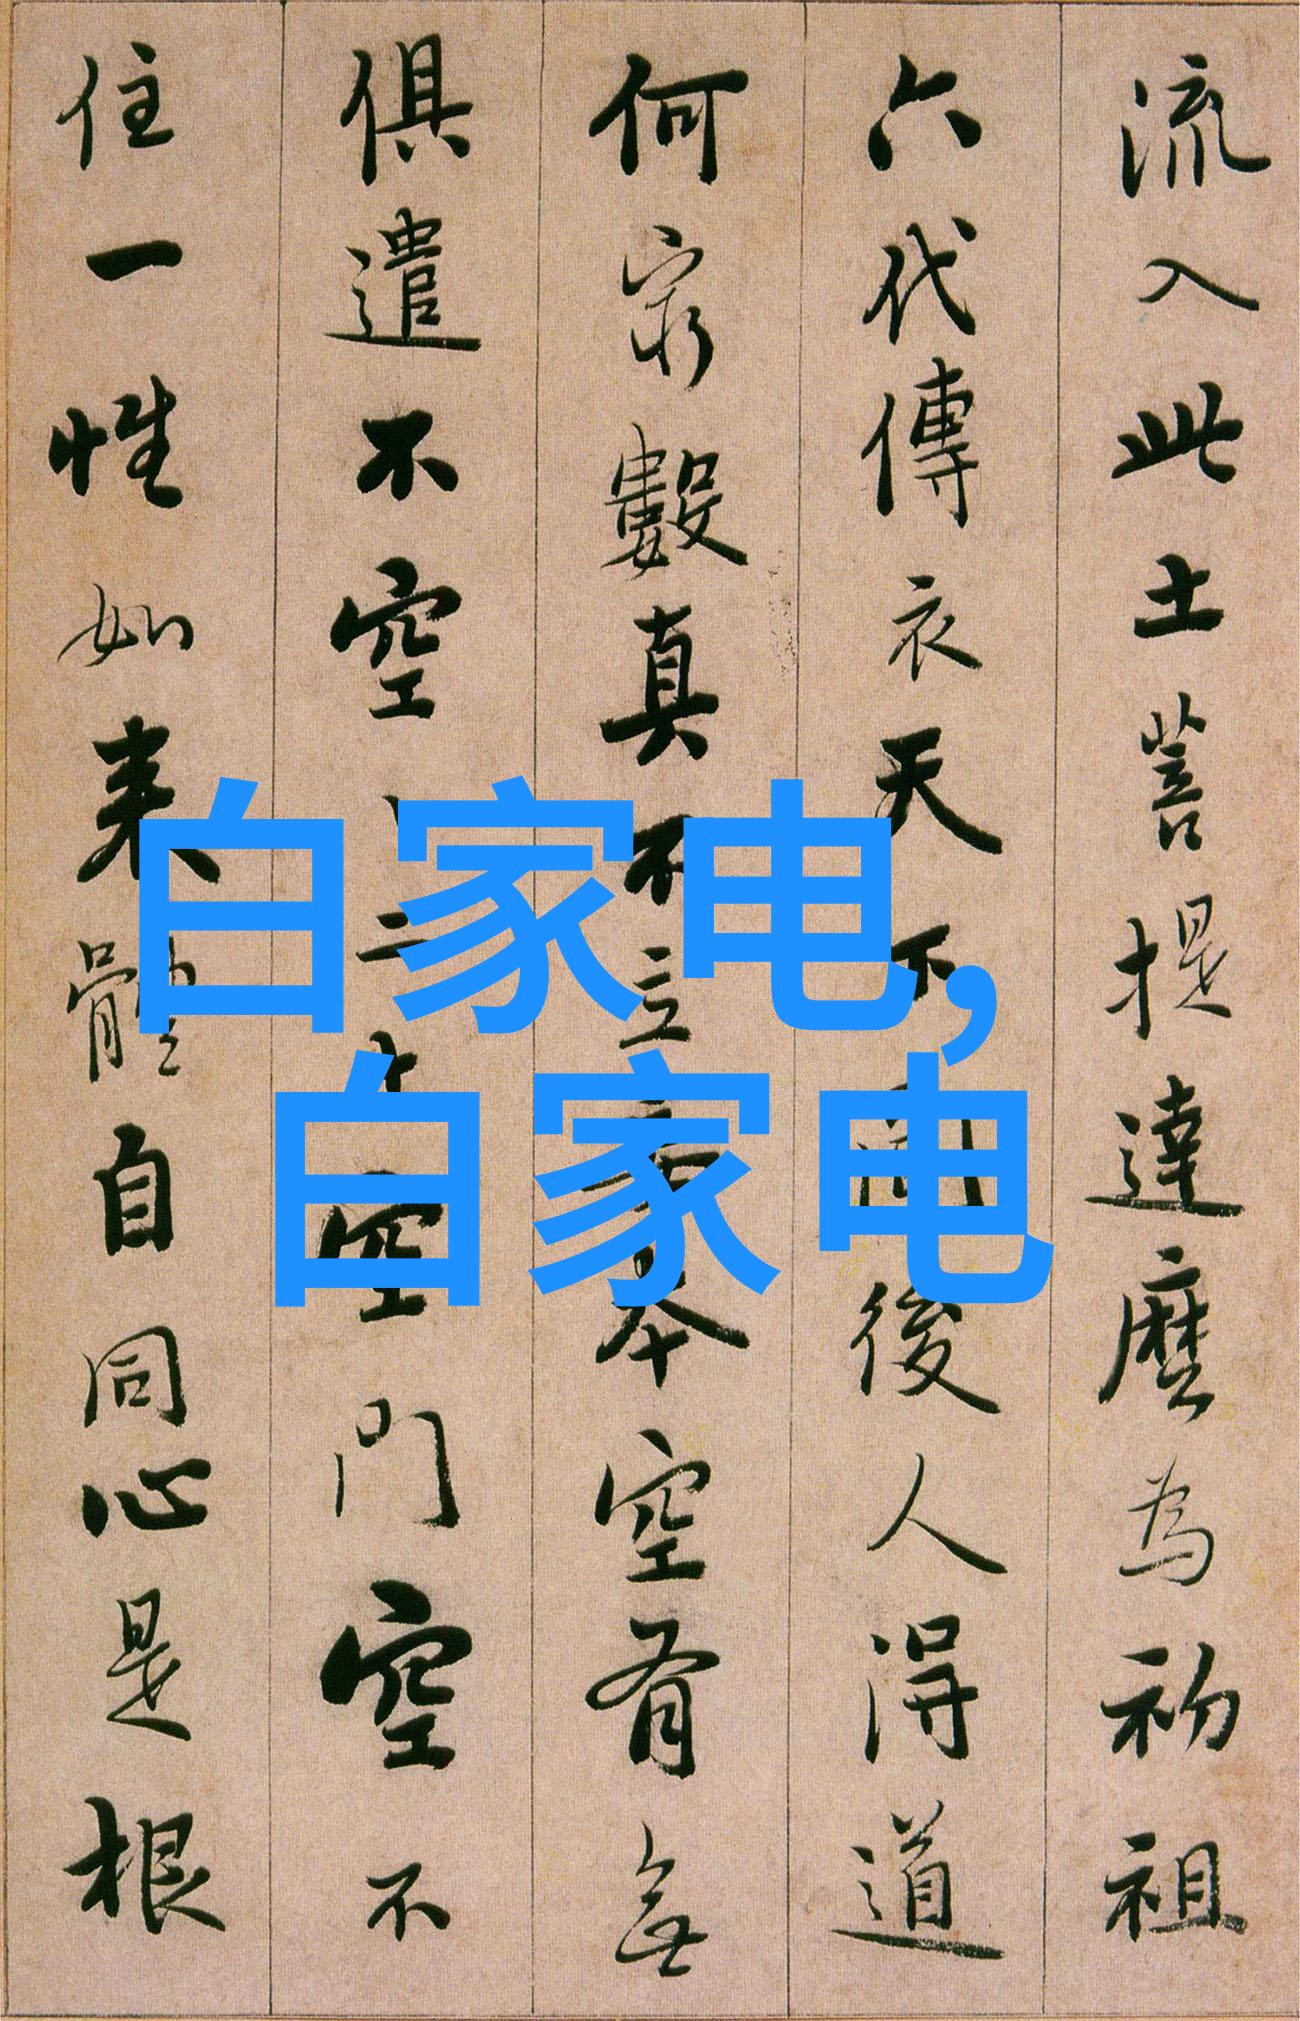 流入此土菩提達磨為初祖
六代傳衣天下聞後人得道
何窮數真不立妄本空有無
俱遣不空空二十空門空不
住一性如來體自同心是根
白家电，
白家电